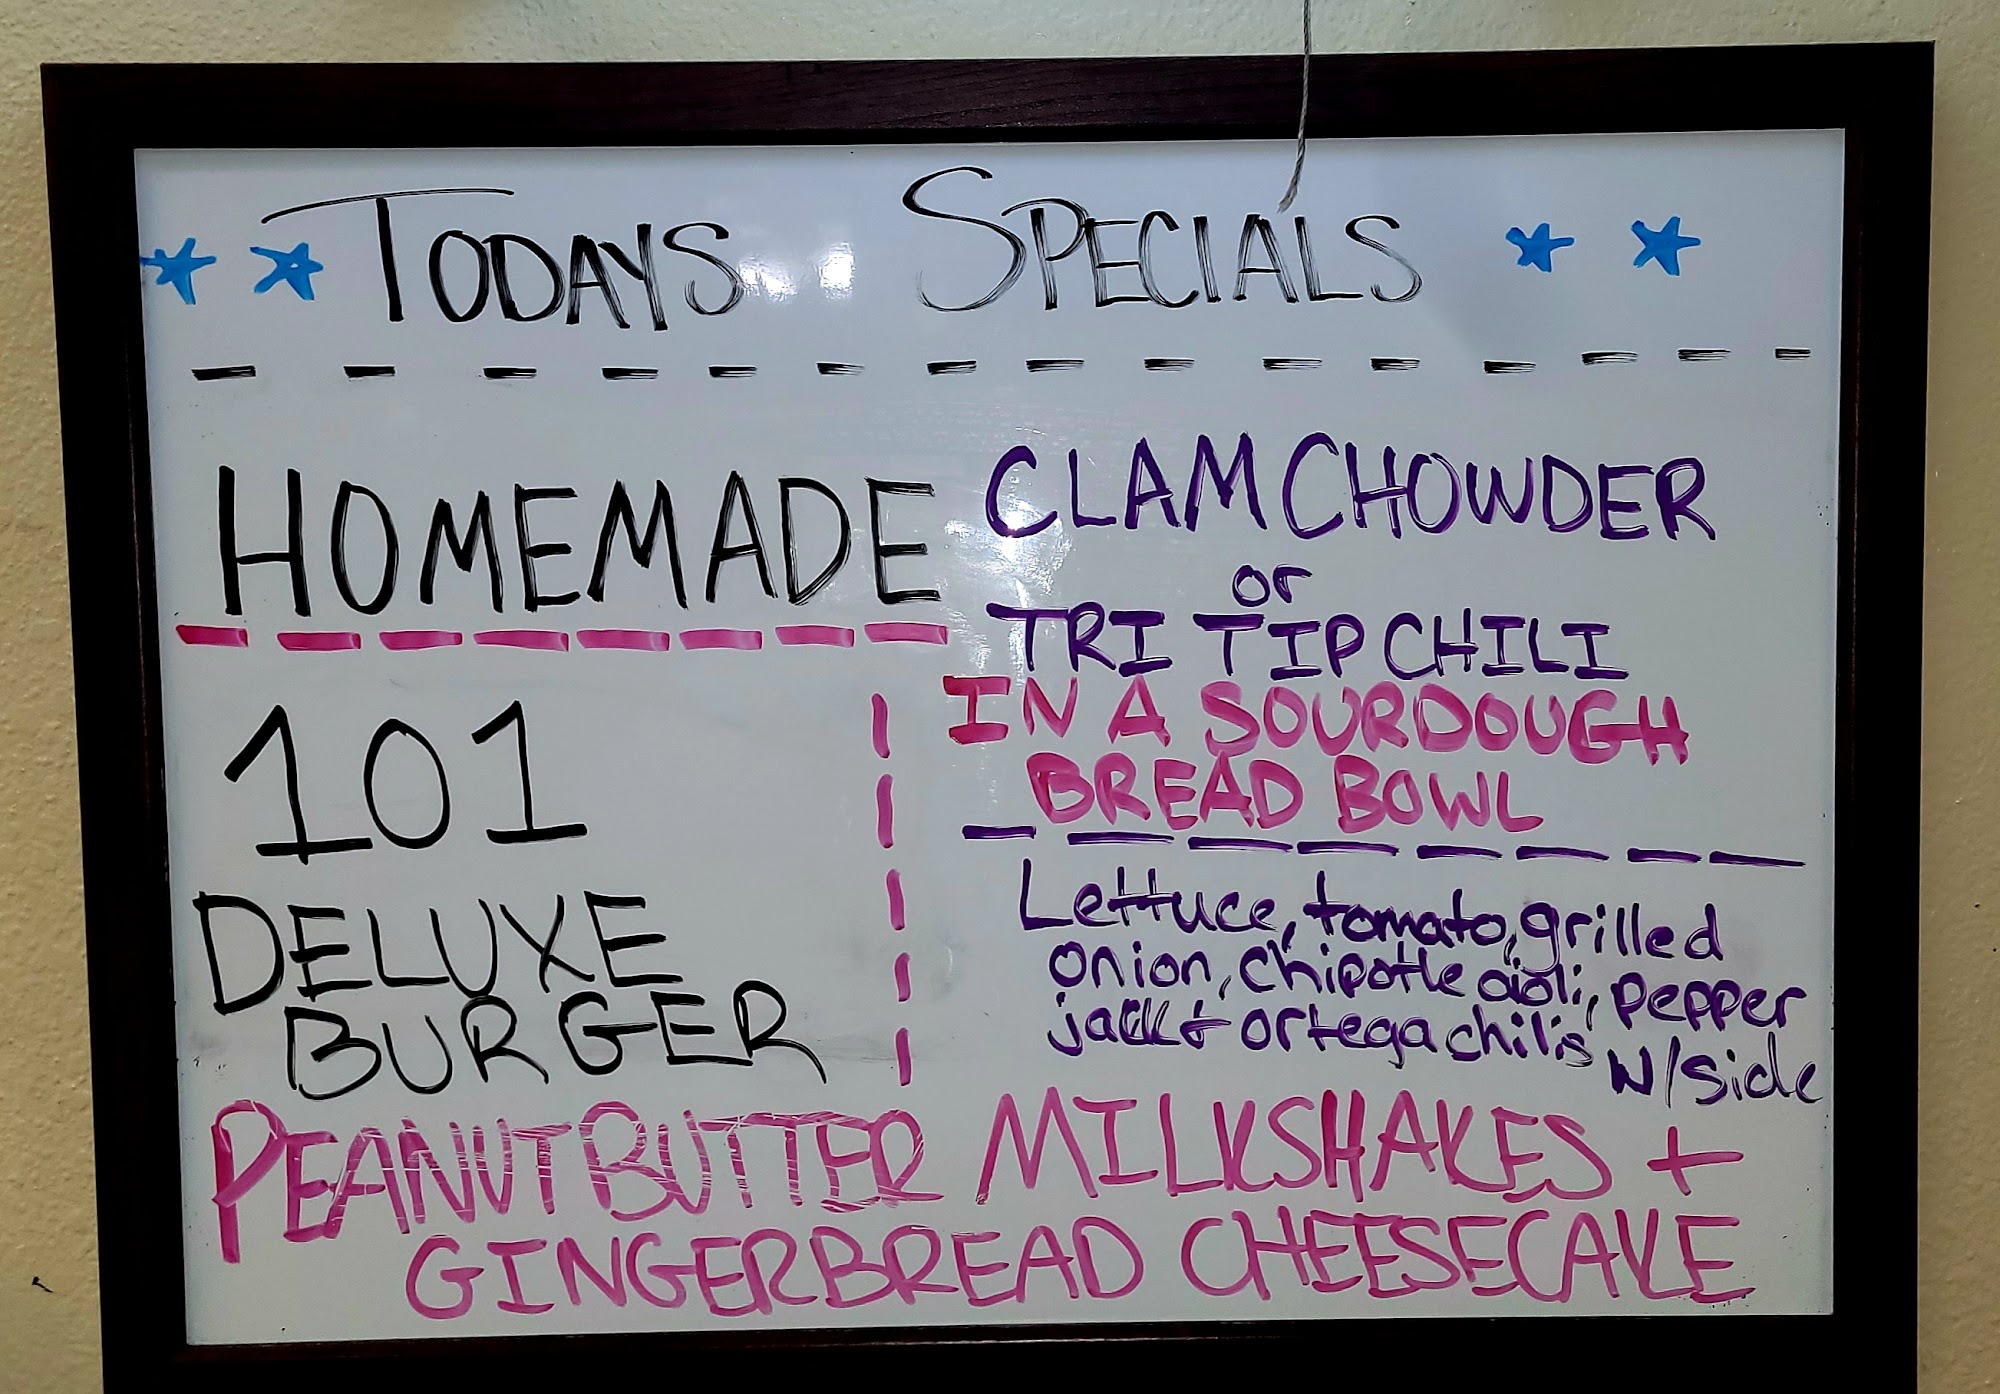 TODAYS SPECIALS
HOMEMADE
CLAM CHOWDER
or
TRI TIP CHILI
IN A SOURDOUGH
BREAD BOWL
101
DELUXE
BURGER
Lettuce, tomato, grilled
onion, chipotle aioli, pepper
jack + ortega chilis
w/side
PEANUTBUTTER MILKSHAKES +
GINGERBREAD CHEESECAKE